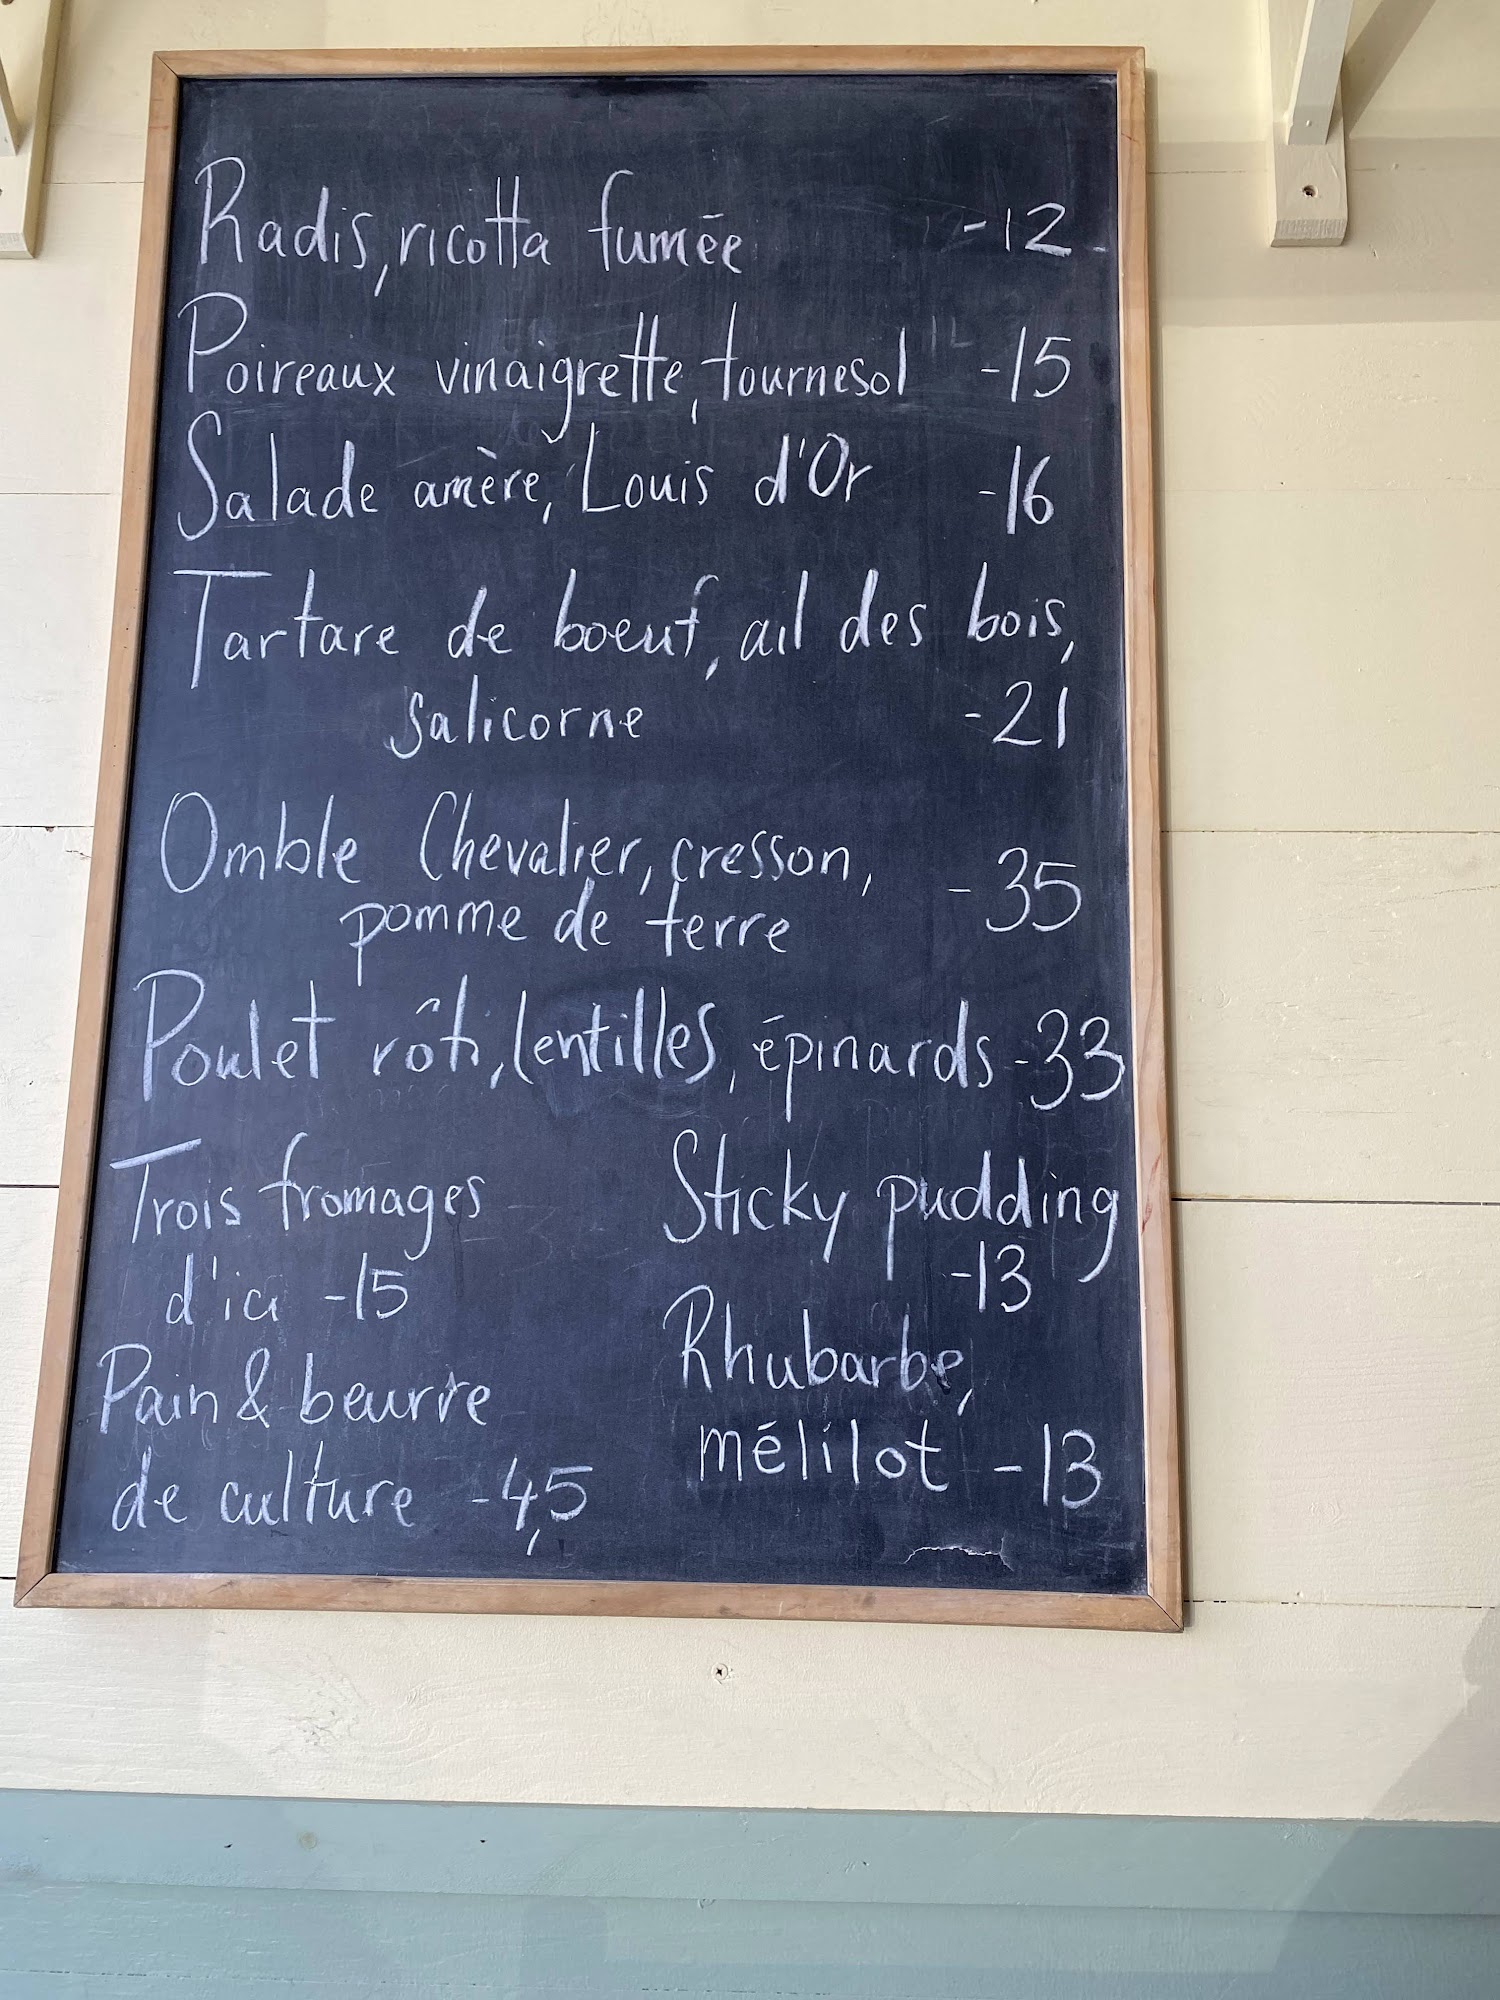 Radis, ricotta fumée -12
Poireaux vinaigrette, tournesol -15
Salade amère, Louis d'Or -16
Tartare de boeuf, ail des bois,
salicorne -21
Omble Chevalier, cresson, -35
pomme de terre
Poulet rôti, lentilles, épinards -33
Trois fromages
d'ici -15
Pain & beurre
de culture -4,5
Sticky pudding
-13
Rhubarbe,
mélilot -13